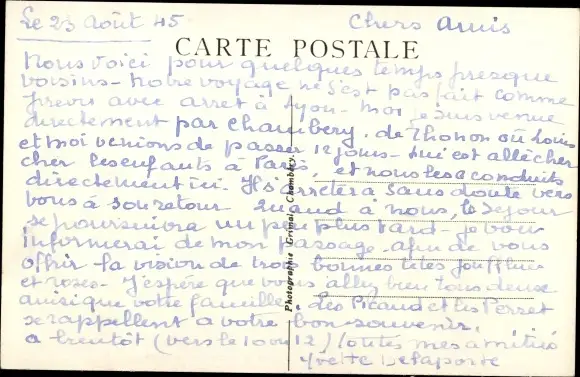 Le 23 Août 45
Chers Amis
CARTE POSTALE
Nous voici pour quelques temps presque
voisins - Notre voyage ne s'est pas fait comme
prévu avec arret à Lyon - Moi je suis venue
directement par Chambéry, de Thonon où Louis
et moi venions de passer 12 jours - Lui est allé cher
cher les enfants à Paris, et nous les a conduits
directement ici. Il s'arretera sans doute vers
vous à son retour. Quand à nous, le séjour
se poursuivra un peu plus tard - je vous
informerai de mon passage afin de vous
offrir la vision de trois bonnes têtes joufflues
et roses - J'espère que vous allez bien tous deux
ainsi que votre famille. Les Picaud et les Perret
se rappellent à votre bon souvenir.
a bientôt (vers le 10 ou 12) toutes mes amitiés
Yvette Delaporte
Photographie Grimal, Chambéry.